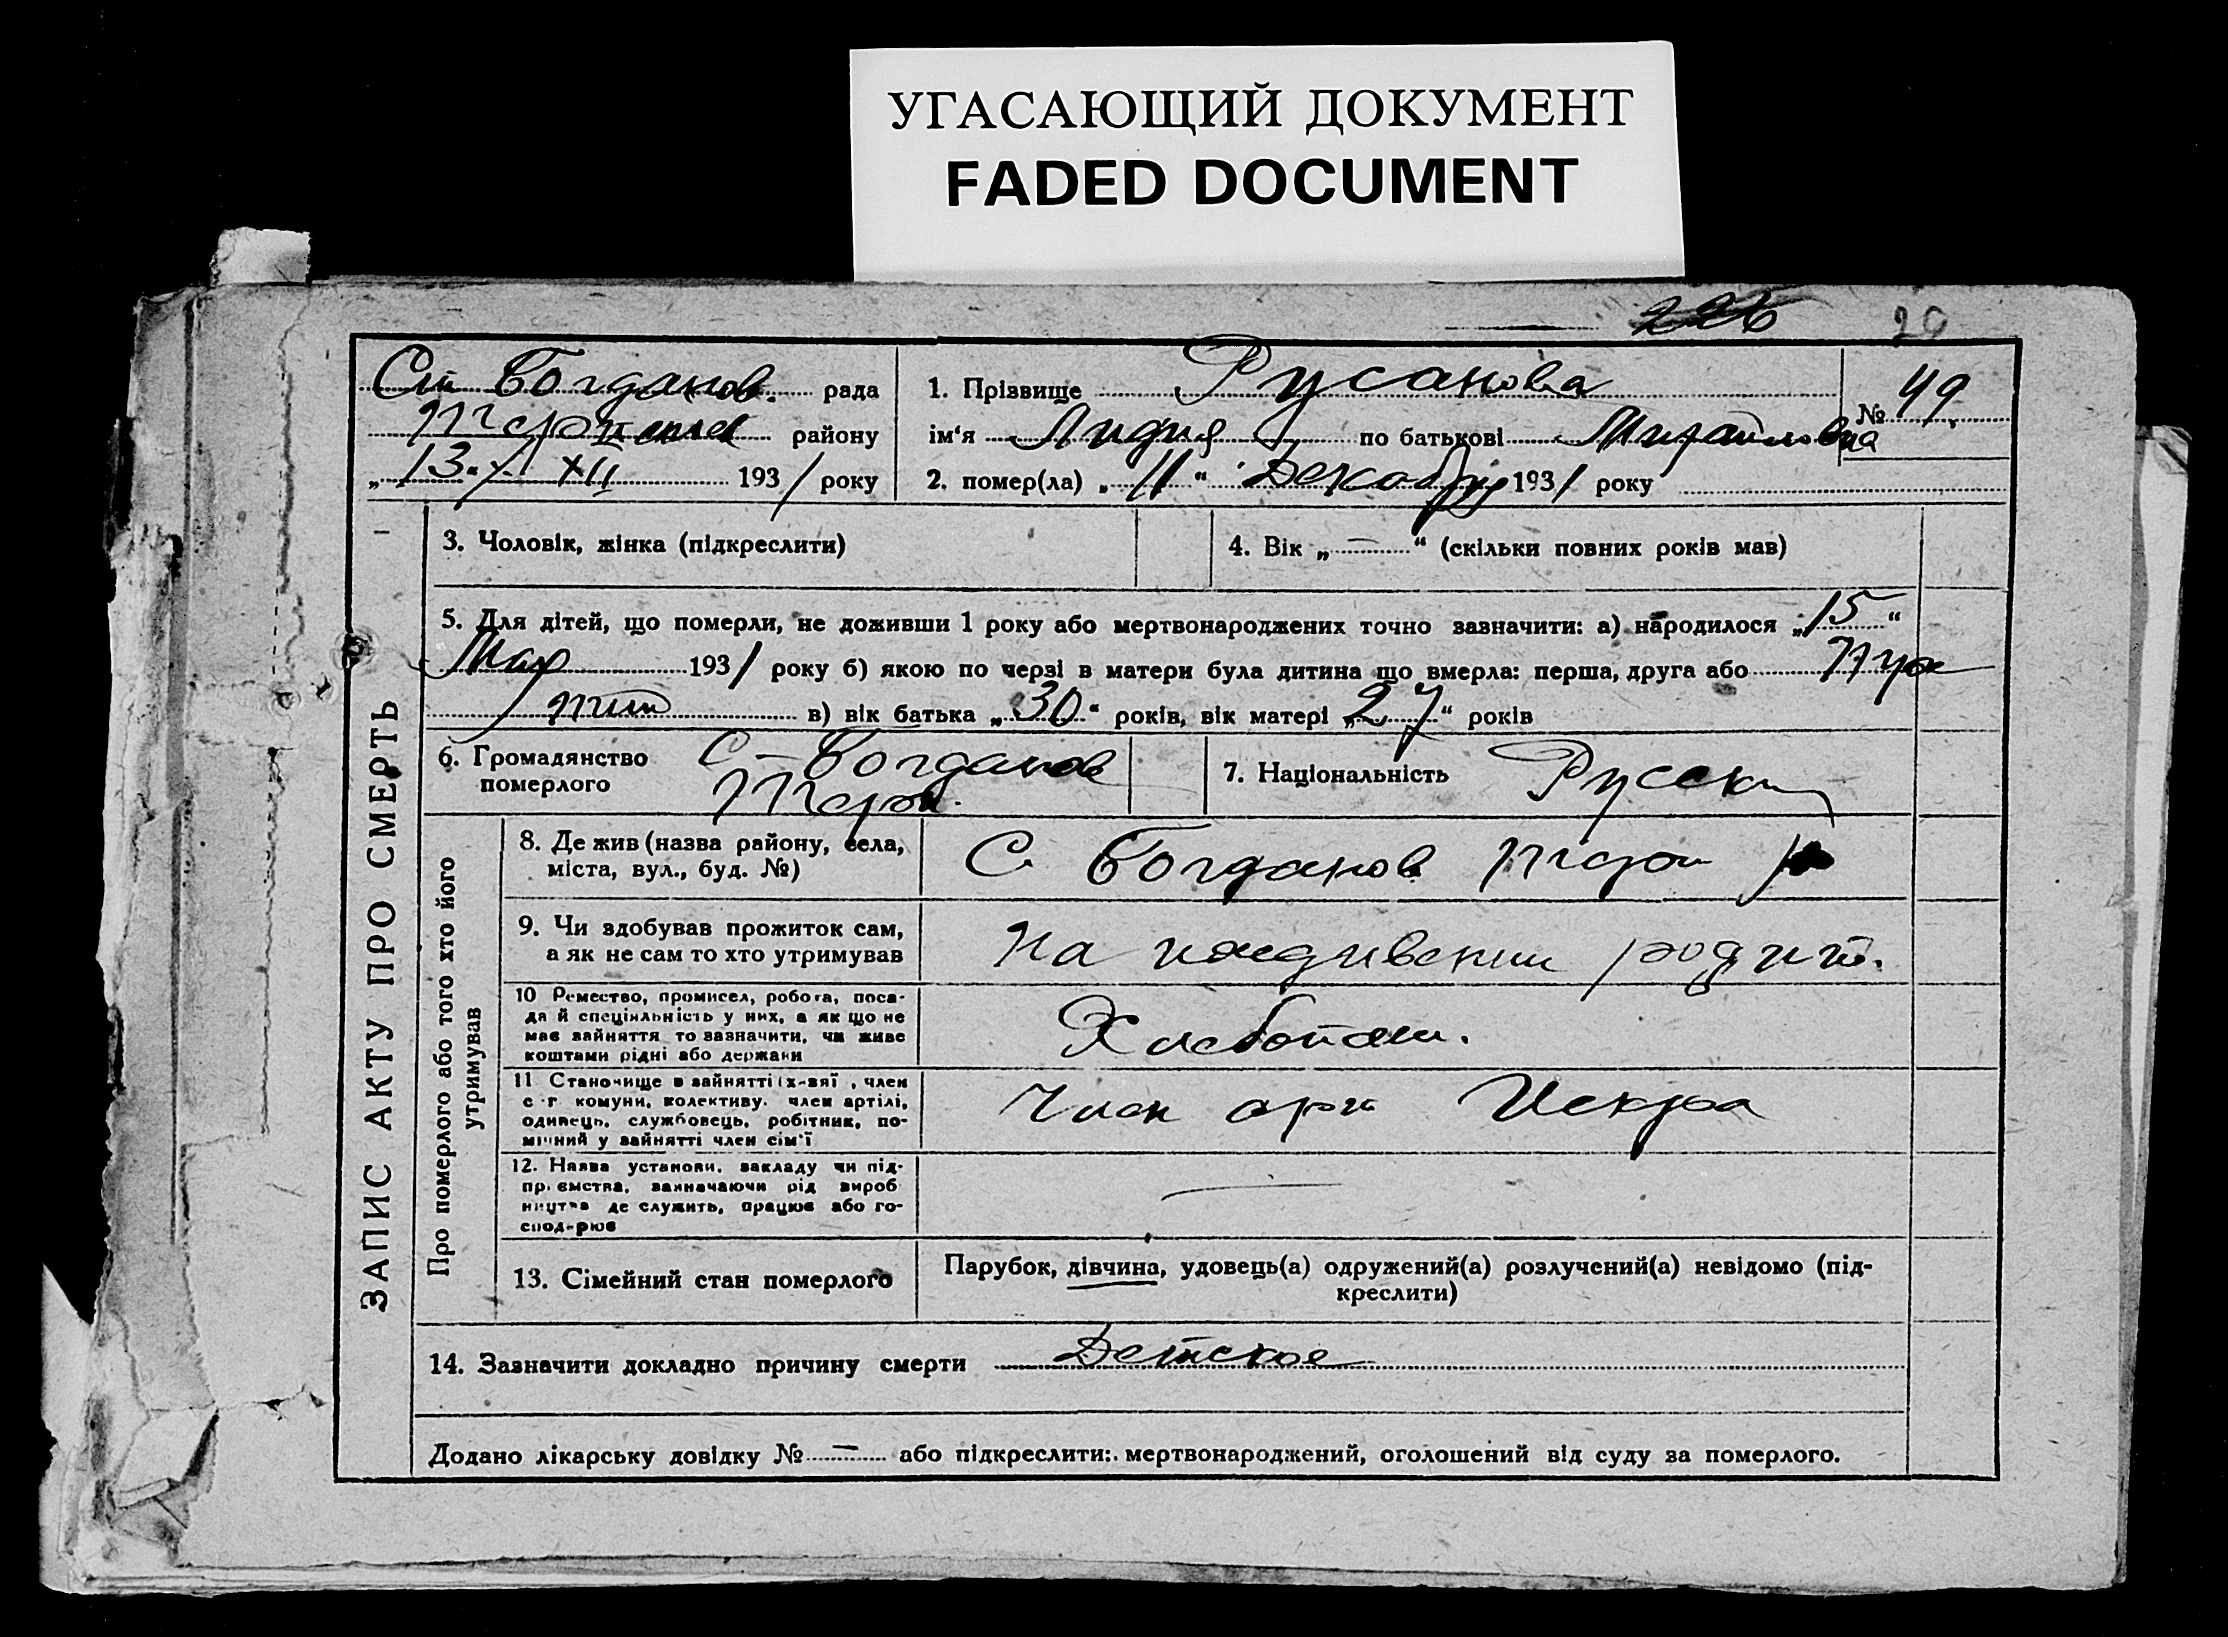 УГАСАЮЩИЙ ДОКУМЕНТ
FADED DOCUMENT
226 20
Богданов. рада
району
„13" XII 1931 року
1. Прізвище Русанова
ім‘я Лидия по батькові Михайловна
№ 49
2. помер(ла) „11“ Декабря 1931 року
3. Чоловік, жінка (підкреслити)
4. Вік „—“ (скільки повних років мав)
5. Для дітей, що померли, не доживши 1 року або мертвонароджених точно зазначити: а) народилося „15“
1931 року б) якою по черзі в матери була дитина що вмерла: перша, друга або
в) вік батька „30“ років, вік матері „27“ років
6. Громадянство померлого
С-Богданов
7. Національність Русск
ЗАПИС АКТУ ПРО СМЕРТЬ
Про померлого або того хто його утримував
8. Де жив (назва району, села,
міста, вул., буд. №)
С. Богданов
9. Чи здобував прожиток сам,
а як не сам то хто утримував
На иждивении родит.
10 Ремество, промисел, робота, поса-
да й спеціяльність у них, а як що не
має зайняття то зазначити, чи живе
коштами рідні або держави
Хлебопаш.
11 Становище в зайнятті , член
с-г комуни, колективу, член артілі,
одинець, службовець, робітник, по-
мічний у зайнятті член сім‘ї
Член арт Искра
12. Назва установи, закладу чи під-
приємства, зазначаючи рід вироб
ництва де служить, працює або го-
сподарює
—
13. Сімейний стан померлого
Парубок, дівчина, удовець(а) одружений(а) розлучений(а) невідомо (під-
креслити)
14. Зазначити докладно причину смерти Детское
Додано лікарську довідку № — або підкреслити: мертвонароджений, оголошений від суду за померлого.